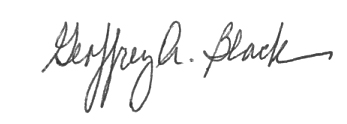 Geoffrey A. Black